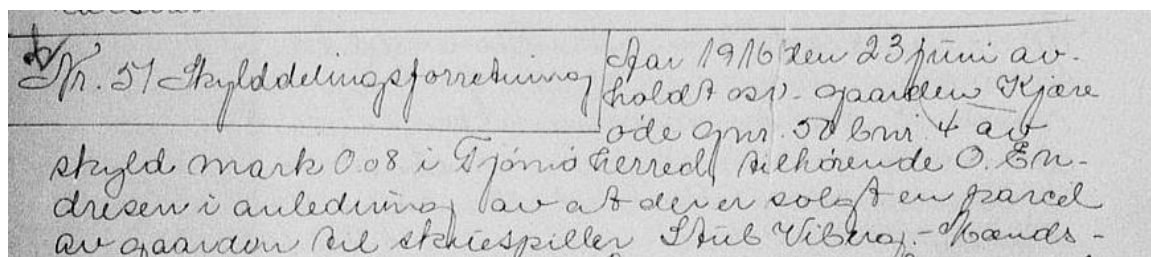 Nr. 51 Skylddelingsforretning
Aar 1916 den 23 juni av-
holdt osv. gaarden Kjære
øde gnr. 50 bnr. 4 av
skyld mark 0.08 i Tjømø herred, tilhørende O. En-
dresen i anledning av at der er solgt en parcel
av gaarden til skuespiller Stub Wiberg. - Mænds-